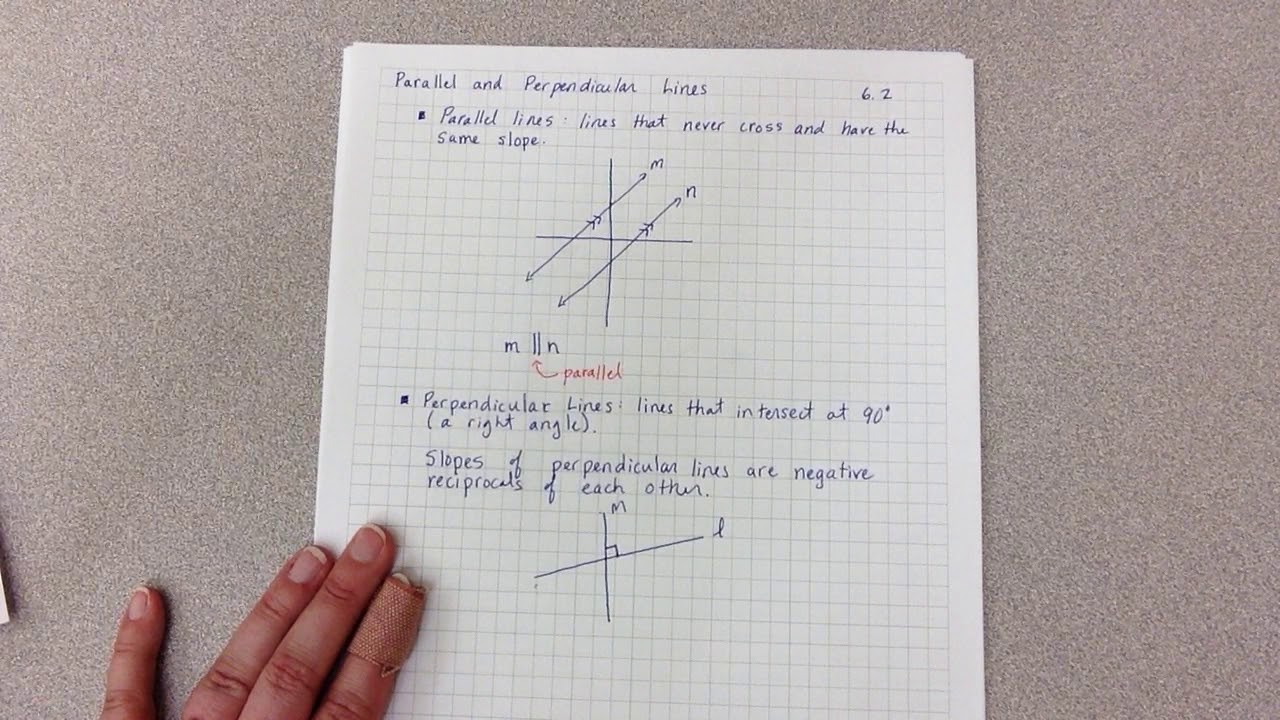 Parallel and Perpendicular Lines 6.2
▪ Parallel lines: lines that never cross and have the
same slope.
m
n
m || n
parallel
▪ Perpendicular Lines: lines that intersect at 90°
(a right angle).
Slopes of perpendicular lines are negative
reciprocals of each other.
m
l